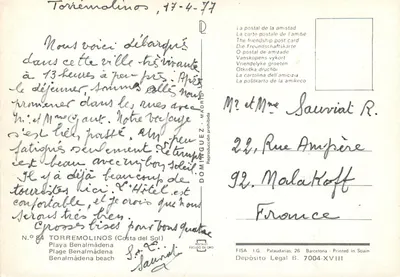 Torremolinos, 17-4-77
Nous voici débarqués
dans cette ville très vivante
à 13 heures à peu près. Après
le déjeuner, sommes allés nous
promener dans les rues avec
Mr. et Mme Notre voyage
s'est bien passé. Un peu
fatigués seulement. Le temps
est beau avec un bon soleil.
Il y a déjà beaucoup de
touristes ici. L'Hôtel est
confortable, et je crois que nous
serons très bien.
Grosses bises pour vous quatre
Sauviat
N.º TORREMOLINOS (Costa del Sol)
Playa Benalmádena
Playa Benalmádena
Benalmádena beach
DOMINGUEZ - MADRID
Reproducción prohibida
La postal de la amistad
La carte postale de l'amitié
The friendship post card
Die Freundschaftskarte
O postal de amizade
Vanskapens vykort
La cartolina dell'amicizia
Mr et Mme Sauviat R.
22, Rue Ampère
92. Malakoff
France
FISA I.G. Palaudarias, 26 Barcelona Printed in Spain
Depósito Legal B. 7004-XVIII